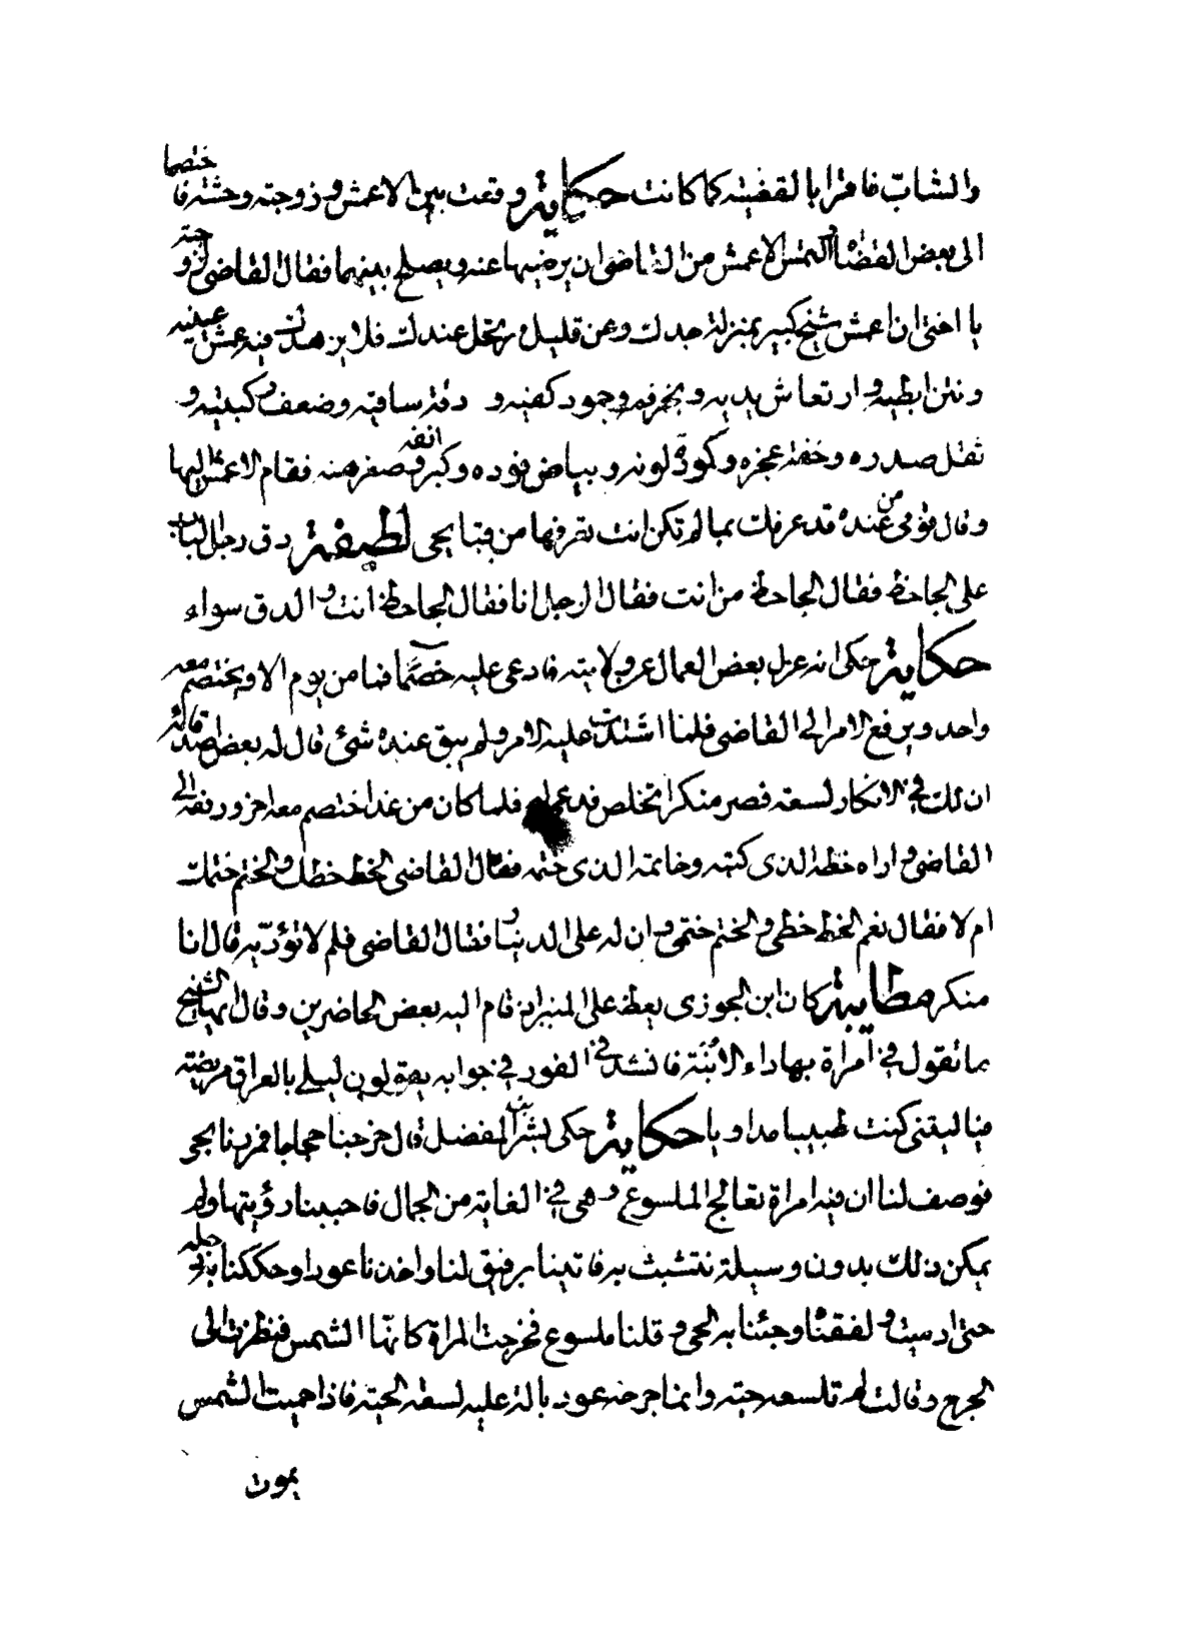 والشاب فاقرا بالقضية كما كانت حكاية وقعت بين الاعمش وزوجته وحشة فاختصما
الى بعض القضاة التمس الاعمش من القاضى ان يرضيها عنه ويصلح بينهما فقال القاضى لزوجته
يا اختى ان اعمش شيخ كبير بمنزلة جدك وعن قليل يرتحل عندك فلا يزهدك فيه عمش عينيه
ونتن ابطيه وارتعاش يديه وبخر فمه وجمود كفيه و دقة ساقيه وضعف ركبتيه و
ثقل صدره وخفة عجزه وكمودة لونه وبياض فوده وكبر انفه وصغر فقام الاعمش اليها
وقال قومى من عنده قد عرفك بما لم تكن انت تعرفها من قبايحى لطيفة دق رجل الباب
على الجاحظ فقال الجاحظ من انت فقال الرجل انا فقال الجاحظ انت والدق سواء
حكاية حكى انه عزل بعض العمال عن ولايته فادعى عليه خصما فما من يوم الا ويختصم معه
واحد ويرفع الامر الى القاضى فلما اشتدت عليه الامر ولم يبق عنده شئ قال له بعض اصدقائه
ان لك فى الانكار لسعة فصر منكرا تخلص فلما كان من غد اختصم معه اخر ورفعه الى
القاضى واراه خطه الذى كتبه وخاتمه الذى ختمه فقال القاضى الخط خطك والختم ختمك
ام لا فقال نعم الخط خطى والختم ختمى وان له على الدنيا فقال القاضى فلم لا تؤديه قال انا
منكر مطايبة كان ابن الجوزى يعظ على المنبر اذ قام اليه بعض الحاضرين وقال ايها الشيخ
ما تقول فى امراة بها داء الابنة فانشد فى الفور فى جوابه يقولون ليلى بالعراق مريضة
فيا ليتنى كنت طبيبا مداويا حكاية حكى بشر بن المفضل قال خرجنا حجاجا فمررنا بحى
فوصف لنا ان فيه امراة تعالج الملسوع وهى فى الغاية من الجمال فاحببنا رؤيتها ولم
يمكن ذلك بدون وسيلة نتشبث به فاتينا برفيق لنا واخذنا عودا وحككنا به رجله
حتى ادميت ولففنا وجئنا به الحى وقلنا ملسوع فخرجت المراة كانها الشمس فنظرت الى
الجرح وقالت لم تلسعه حية وانما جرحه عود بالت عليه لسعة الحية فاذا حميت الشمس
يموت